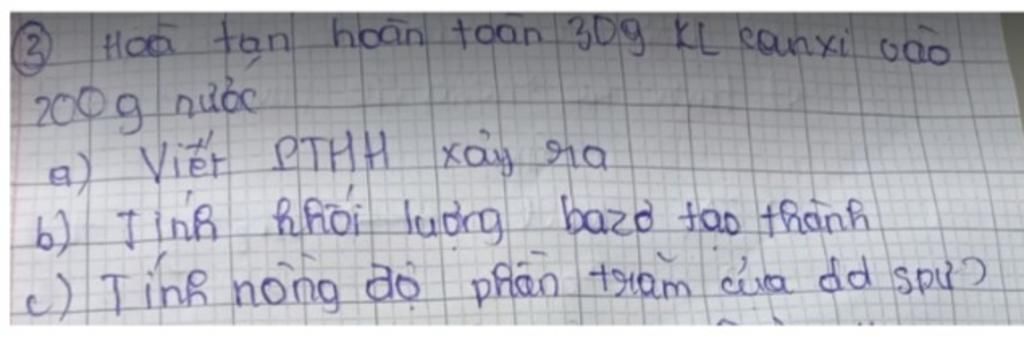 ③ Hoà tan hoàn toàn 30g KL canxi vào
200g nước
a) Viết PTHH xảy ra
b) Tính khối lượng bazơ tạo thành
c) Tính nồng độ phần trăm của dd spư?